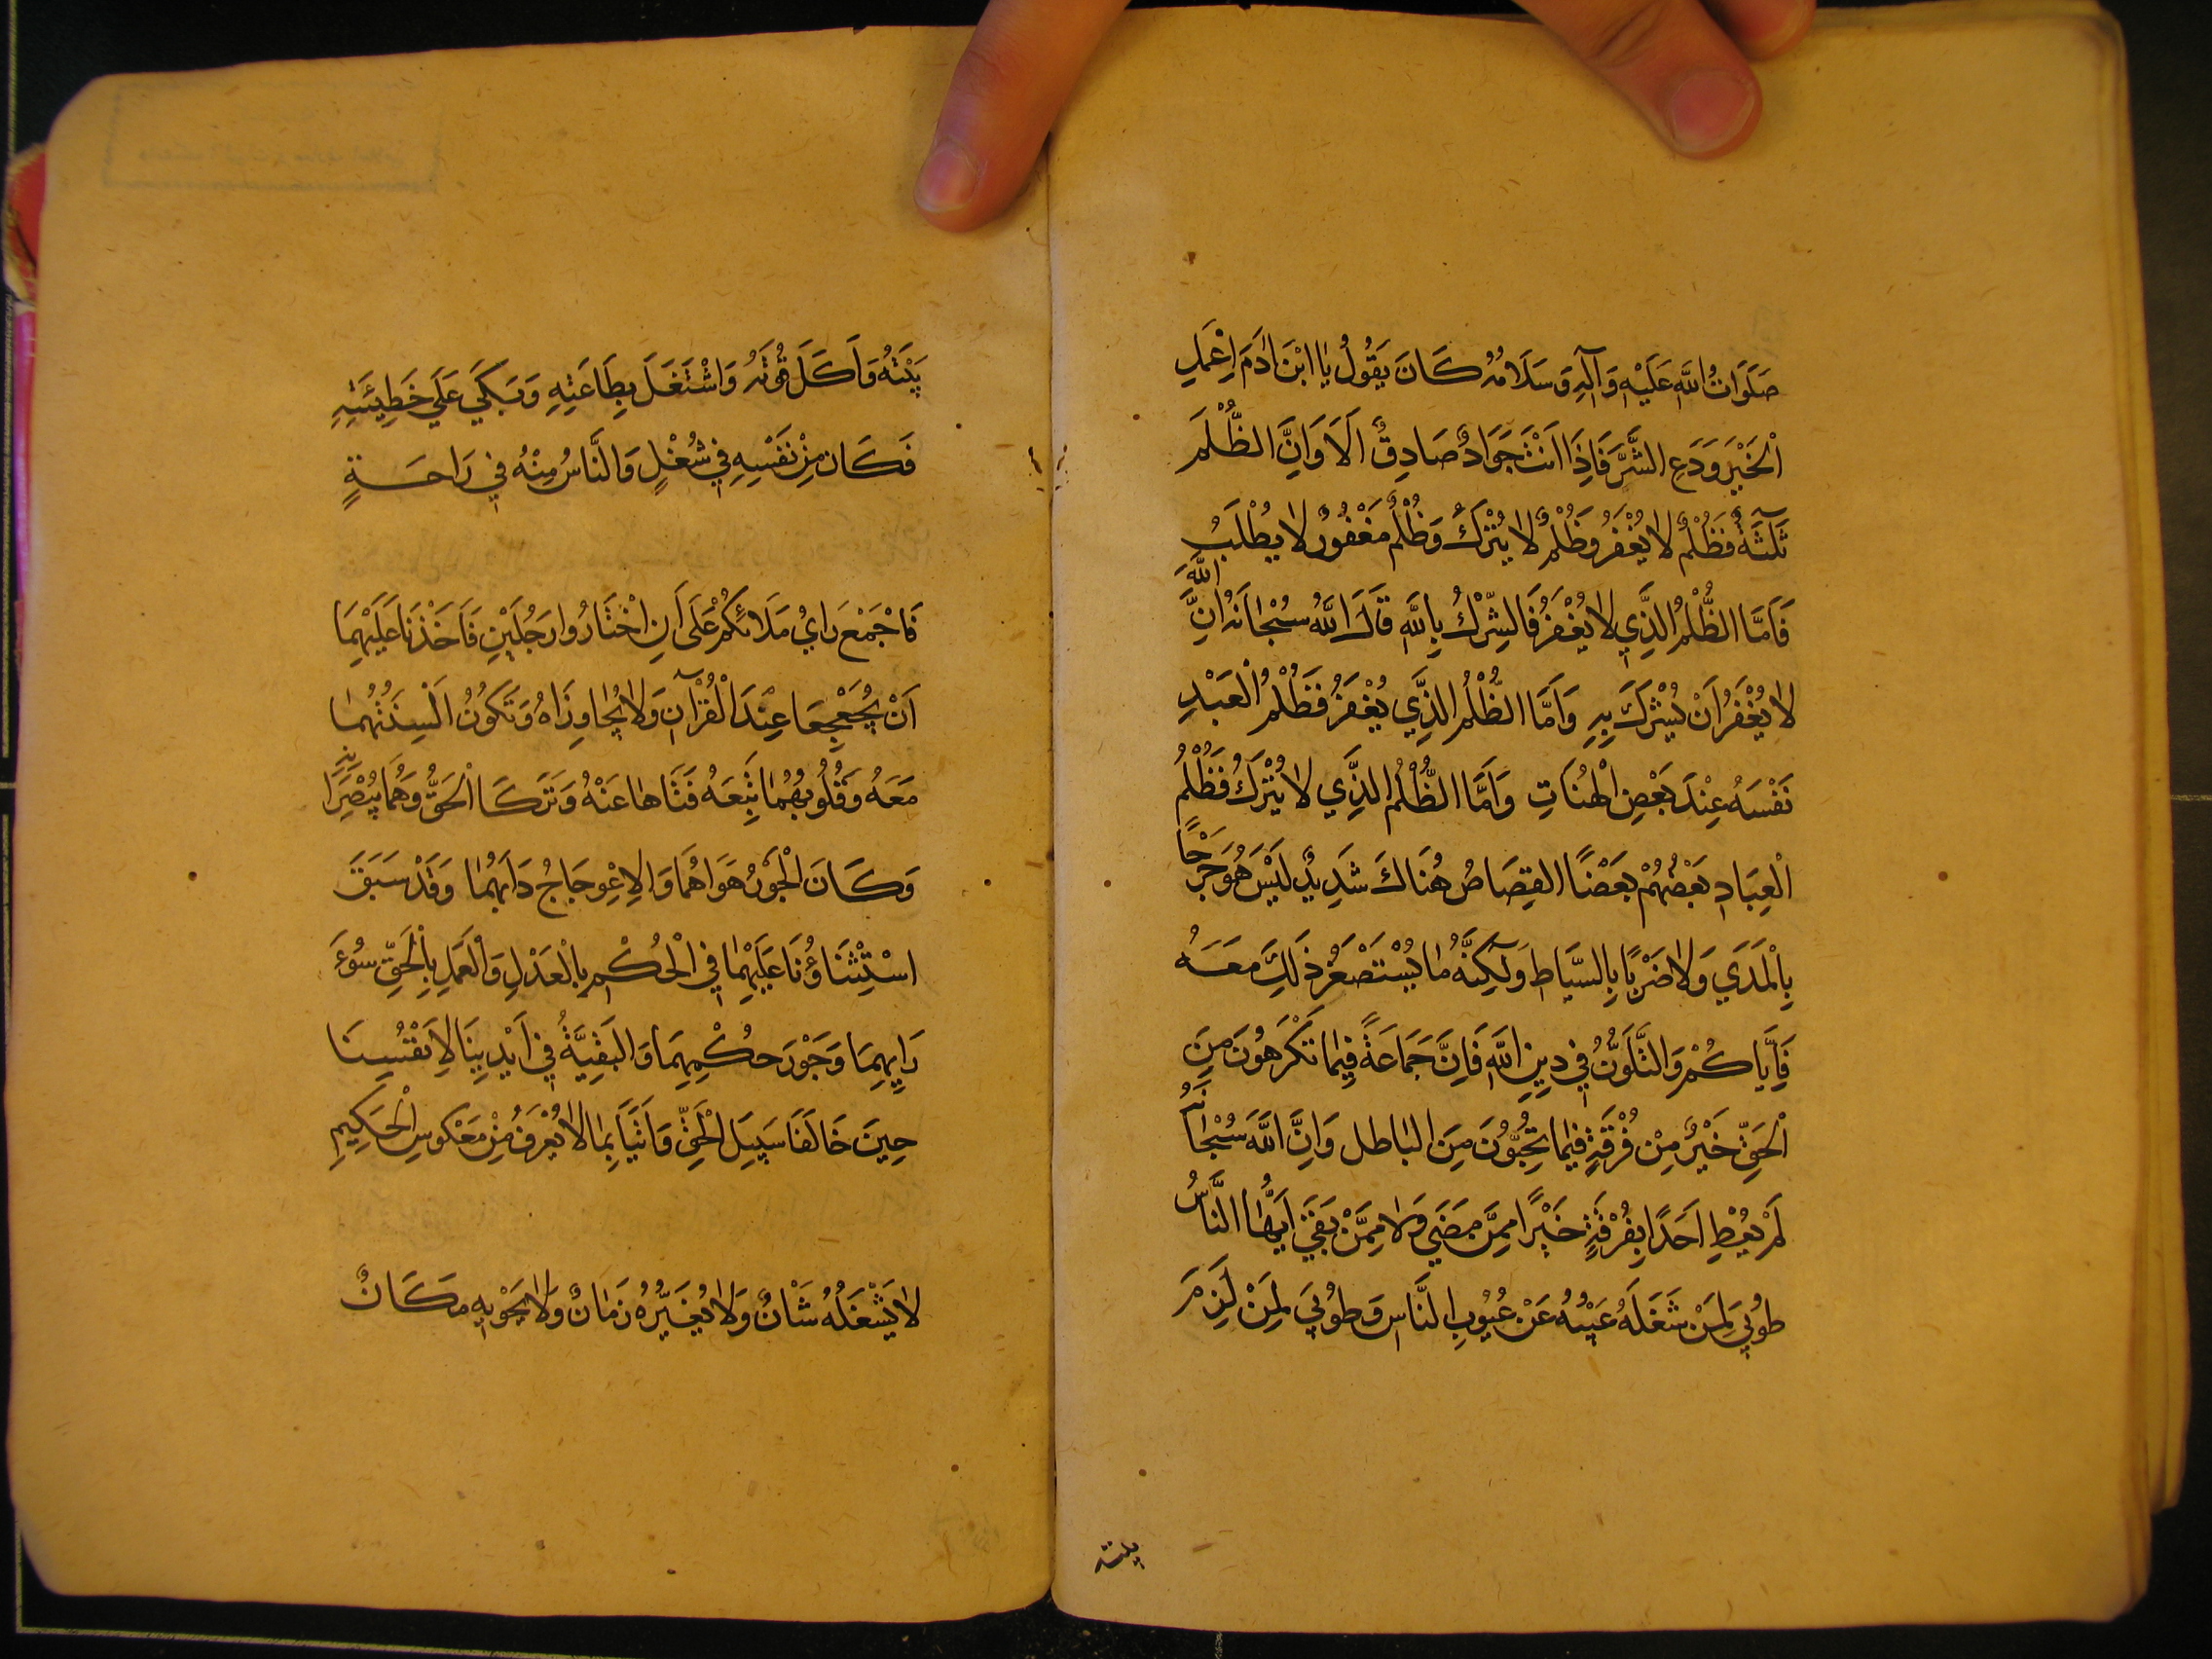 صَلَوَاتُ اللّٰهِ عَلَيْهِ وَآلِهِ وَسَلَامُهُ كَانَ يَقُولُ يَا ابْنَ اٰدَمَ اِعْمَلِ
الْخَيْرَ وَدَعِ الشَّرَّ فَاِذَا اَنْتَ جَوَادٌ صَادِقٌ اَلَا وَاِنَّ الظُّلْمَ
ثَلٰثَةٌ فَظُلْمٌ لَا يُغْفَرُ وَظُلْمٌ لَا يُتْرَكُ وَظُلْمٌ مَغْفُورٌ لَا يُطْلَبُ
فَاَمَّا الظُّلْمُ الَّذِي لَا يُغْفَرُ فَالشِّرْكُ بِاللّٰهِ قَالَ اللّٰهُ سُبْحَانَهُ اِنَّ اللّٰهَ
لَا يُغْفَرُ اَنْ يُشْرَكَ بِهِ وَاَمَّا الظُّلْمُ الَّذِي يُغْفَرُ فَظُلْمُ الْعَبْدِ
نَفْسَهُ عِنْدَ بَعْضِ الْهَنَاتِ وَاَمَّا الظُّلْمُ الَّذِي لَا يُتْرَكُ فَظُلْمُ
الْعِبَادِ بَعْضُهُمْ بَعْضًا القِصَاصُ هُنَاكَ شَدِيدٌ لَيْسَ هُوَ جَرْحًا
بِالْمَدَي وَلَا ضَرْبًا بِالسِّيَاطِ وَلٰكِنَّهُ مَا يُسْتَصْغَرُ ذٰلِكَ مَعَهُ
فَاِيَّاكُمْ وَالتَّلَوُّنَ فِي دِينِ اللّٰهِ فَاِنَّ جَمَاعَةً فِيمَا تَكْرَهُونَ مِنَ
الْحَقِّ خَيْرٌ مِنْ فُرْقَةٍ فِيمَا تُحِبُّونَ مِنَ البَاطل وَاِنَّ اللّٰهَ سُبْحَانَهُ
لَمْ يُعْطِ اَحَدًا بِفُرْقَةٍ خَيْرًا مِمَّنْ مَضَي وَلَا مِمَّنْ بَقَيَ اَيُّهَا النَّاسُ
طُوبَي لِمَنْ شَغَلَهُ عَيْبُهُ عَنْ عُيُوبِ النَّاسِ وَطُوبَي لِمَنْ لَزِمَ
بيته
بَيْتَهُ وَاَكَلَ قُوتَهُ وَاشْتَغَلَ بِطَاعَتِهِ وَبَكَي عَلَي خَطِيئَتِهِ
فَكَانَ مِنْ نَفْسِهِ فِي شُغْلٍ وَالنَّاسُ مِنْهُ فِي رَاحَةٍ
فَاَجْمَعَ رَايُ مَلَائِكُمْ عَلَى اَنِ اخْتَارُوا رَجُلَيْنِ فَاَخَذْنَا عَلَيْهِمَا
اَنْ يُجَعْجِعَا عِنْدَ الْقُرْآنِ وَلَا يُجَاوِزَاهُ وَتَكُونُ اَلْسِنَتُهُمَا
مَعَهُ وَقُلُوبُهُمَا تَبَعَهُ فَتَاهَا عَنْهُ وَتَرَكَا الْحَقَّ وَهُمَا يُبْصِرَانِهِ
وَكَانَ الْجَوْرُ هَوَاهُمَا وَالِاعْوِجَاجُ دَابَهُمَا وَقَدْ سَبَقَ
اسْتِثْنَاؤُنَا عَلَيْهِمَا فِي الْحُكْمِ بِالْعَدْلِ وَالْعَمَلِ بِالْحَقِّ سُوءَ
رَايِهِمَا وَجَوْرَ حُكْمِهِمَا وَالبَقِيَّةُ فِي اَيْدِينَا لِاَنْفُسِنَا
حِينَ خَالَفَا سَبِيلَ الْحَقِّ وَاَتَيَا بِمَا لَا يُعْرَفُ مِنْ مَعْكُوسِ الْحَكِيمِ
لَا يَشْغَلُهُ شَانٌ وَلَا يُغَيِّرُهُ زَمَانٌ وَلَا يَحْوِيهِ مَكَانٌ